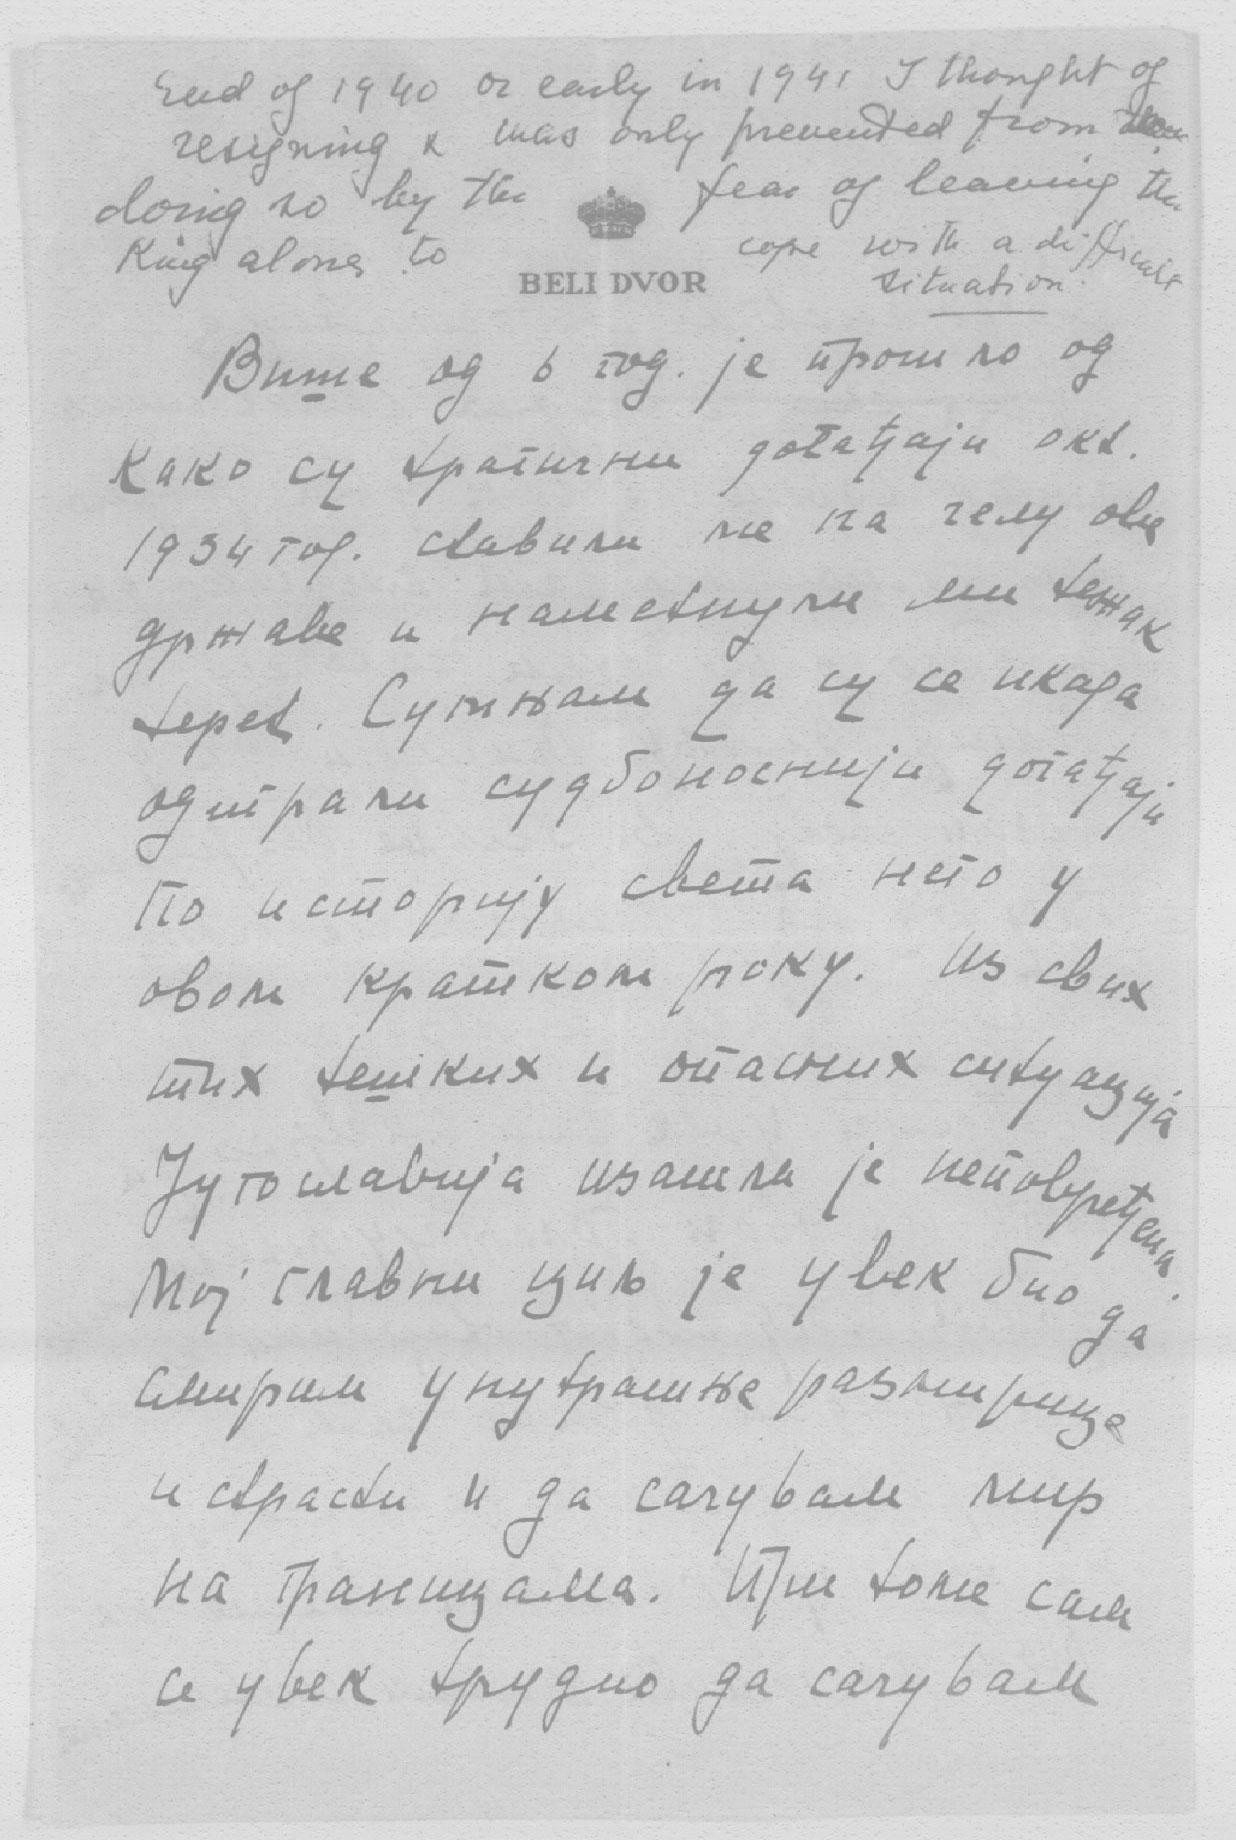 End of 1940 or early in 1941 I thought of
resigning & was only prevented from
doing so by the fear of leaving the
King alone to cope with a difficult
situation.
BELI DVOR
Више од 6 год. је прошло од
како су трагични догађаји окт.
1934 год. ставили ме на челу ове
државе и наметнули ми тежак
терет. Сумњам да су се икада
одиграли судбоноснији догађаји
по историју света него у
овом кратком року. Из свих
тих тешких и опасних ситуација
Југославија изашла је неповређена.
Мој главни циљ је увек био да
смирим унутрашње размирице
и страсти и да сачувам мир
на границама. При томе сам
се увек трудио да сачувам